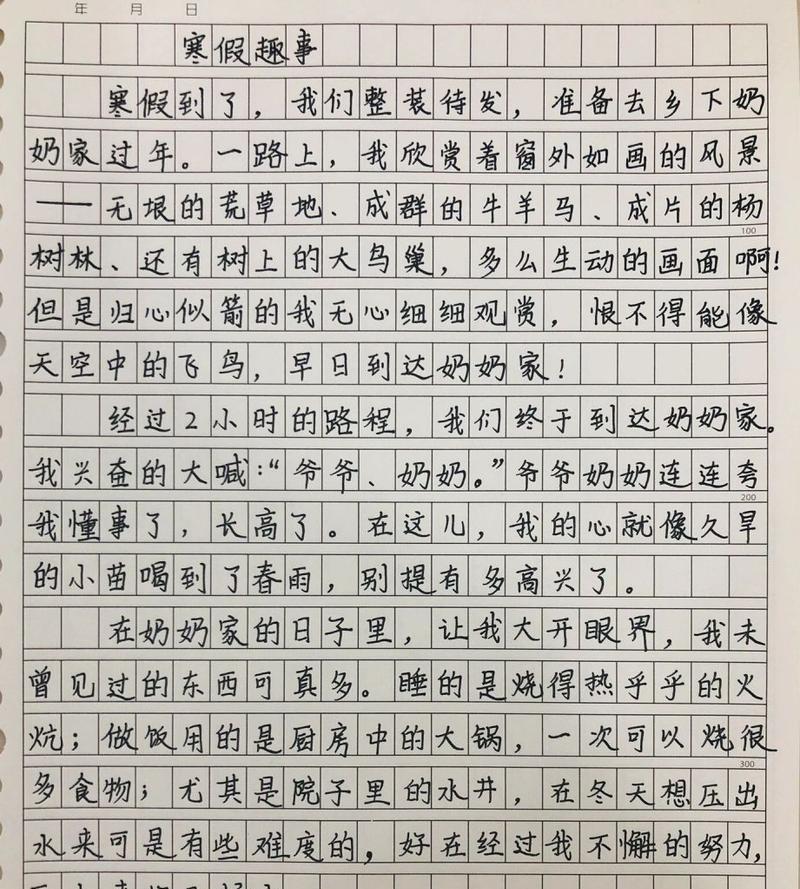 年 月 日
寒假趣事
寒假到了，我们整装待发，准备去乡下奶
奶家过年。一路上，我欣赏着窗外如画的风景
——无垠的荒草地、成群的牛羊马、成片的杨
100
树林、还有树上的大鸟巢，多么生动的画面啊！
但是归心似箭的我无心细细观赏，恨不得能像
天空中的飞鸟，早日到达奶奶家！
经过2小时的路程，我们终于到达奶奶家。
我兴奋的大喊：“爷爷、奶奶。”爷爷奶奶连连夸
200
我懂事了，长高了。在这儿，我的心就像久旱
的小苗喝到了春雨，别提有多高兴了。
在奶奶家的日子里，让我大开眼界，我未
曾见过的东西可真多。睡的是烧得热乎乎的火
炕；做饭用的是厨房中的大锅，一次可以烧很
300
多食物；尤其是院子里的水井，在冬天想压出
水来可是有些难度的，好在经过我不懈的努力，